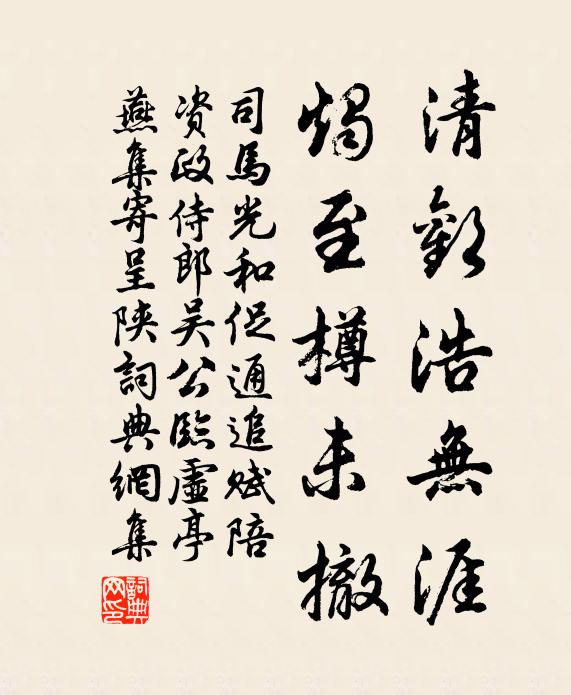 清歡浩無涯
燭至樽未撤
司馬光和促通追賦陪
资政侍郎吴公臨虛亭
燕集寄呈陕詞典網集
詞典网印